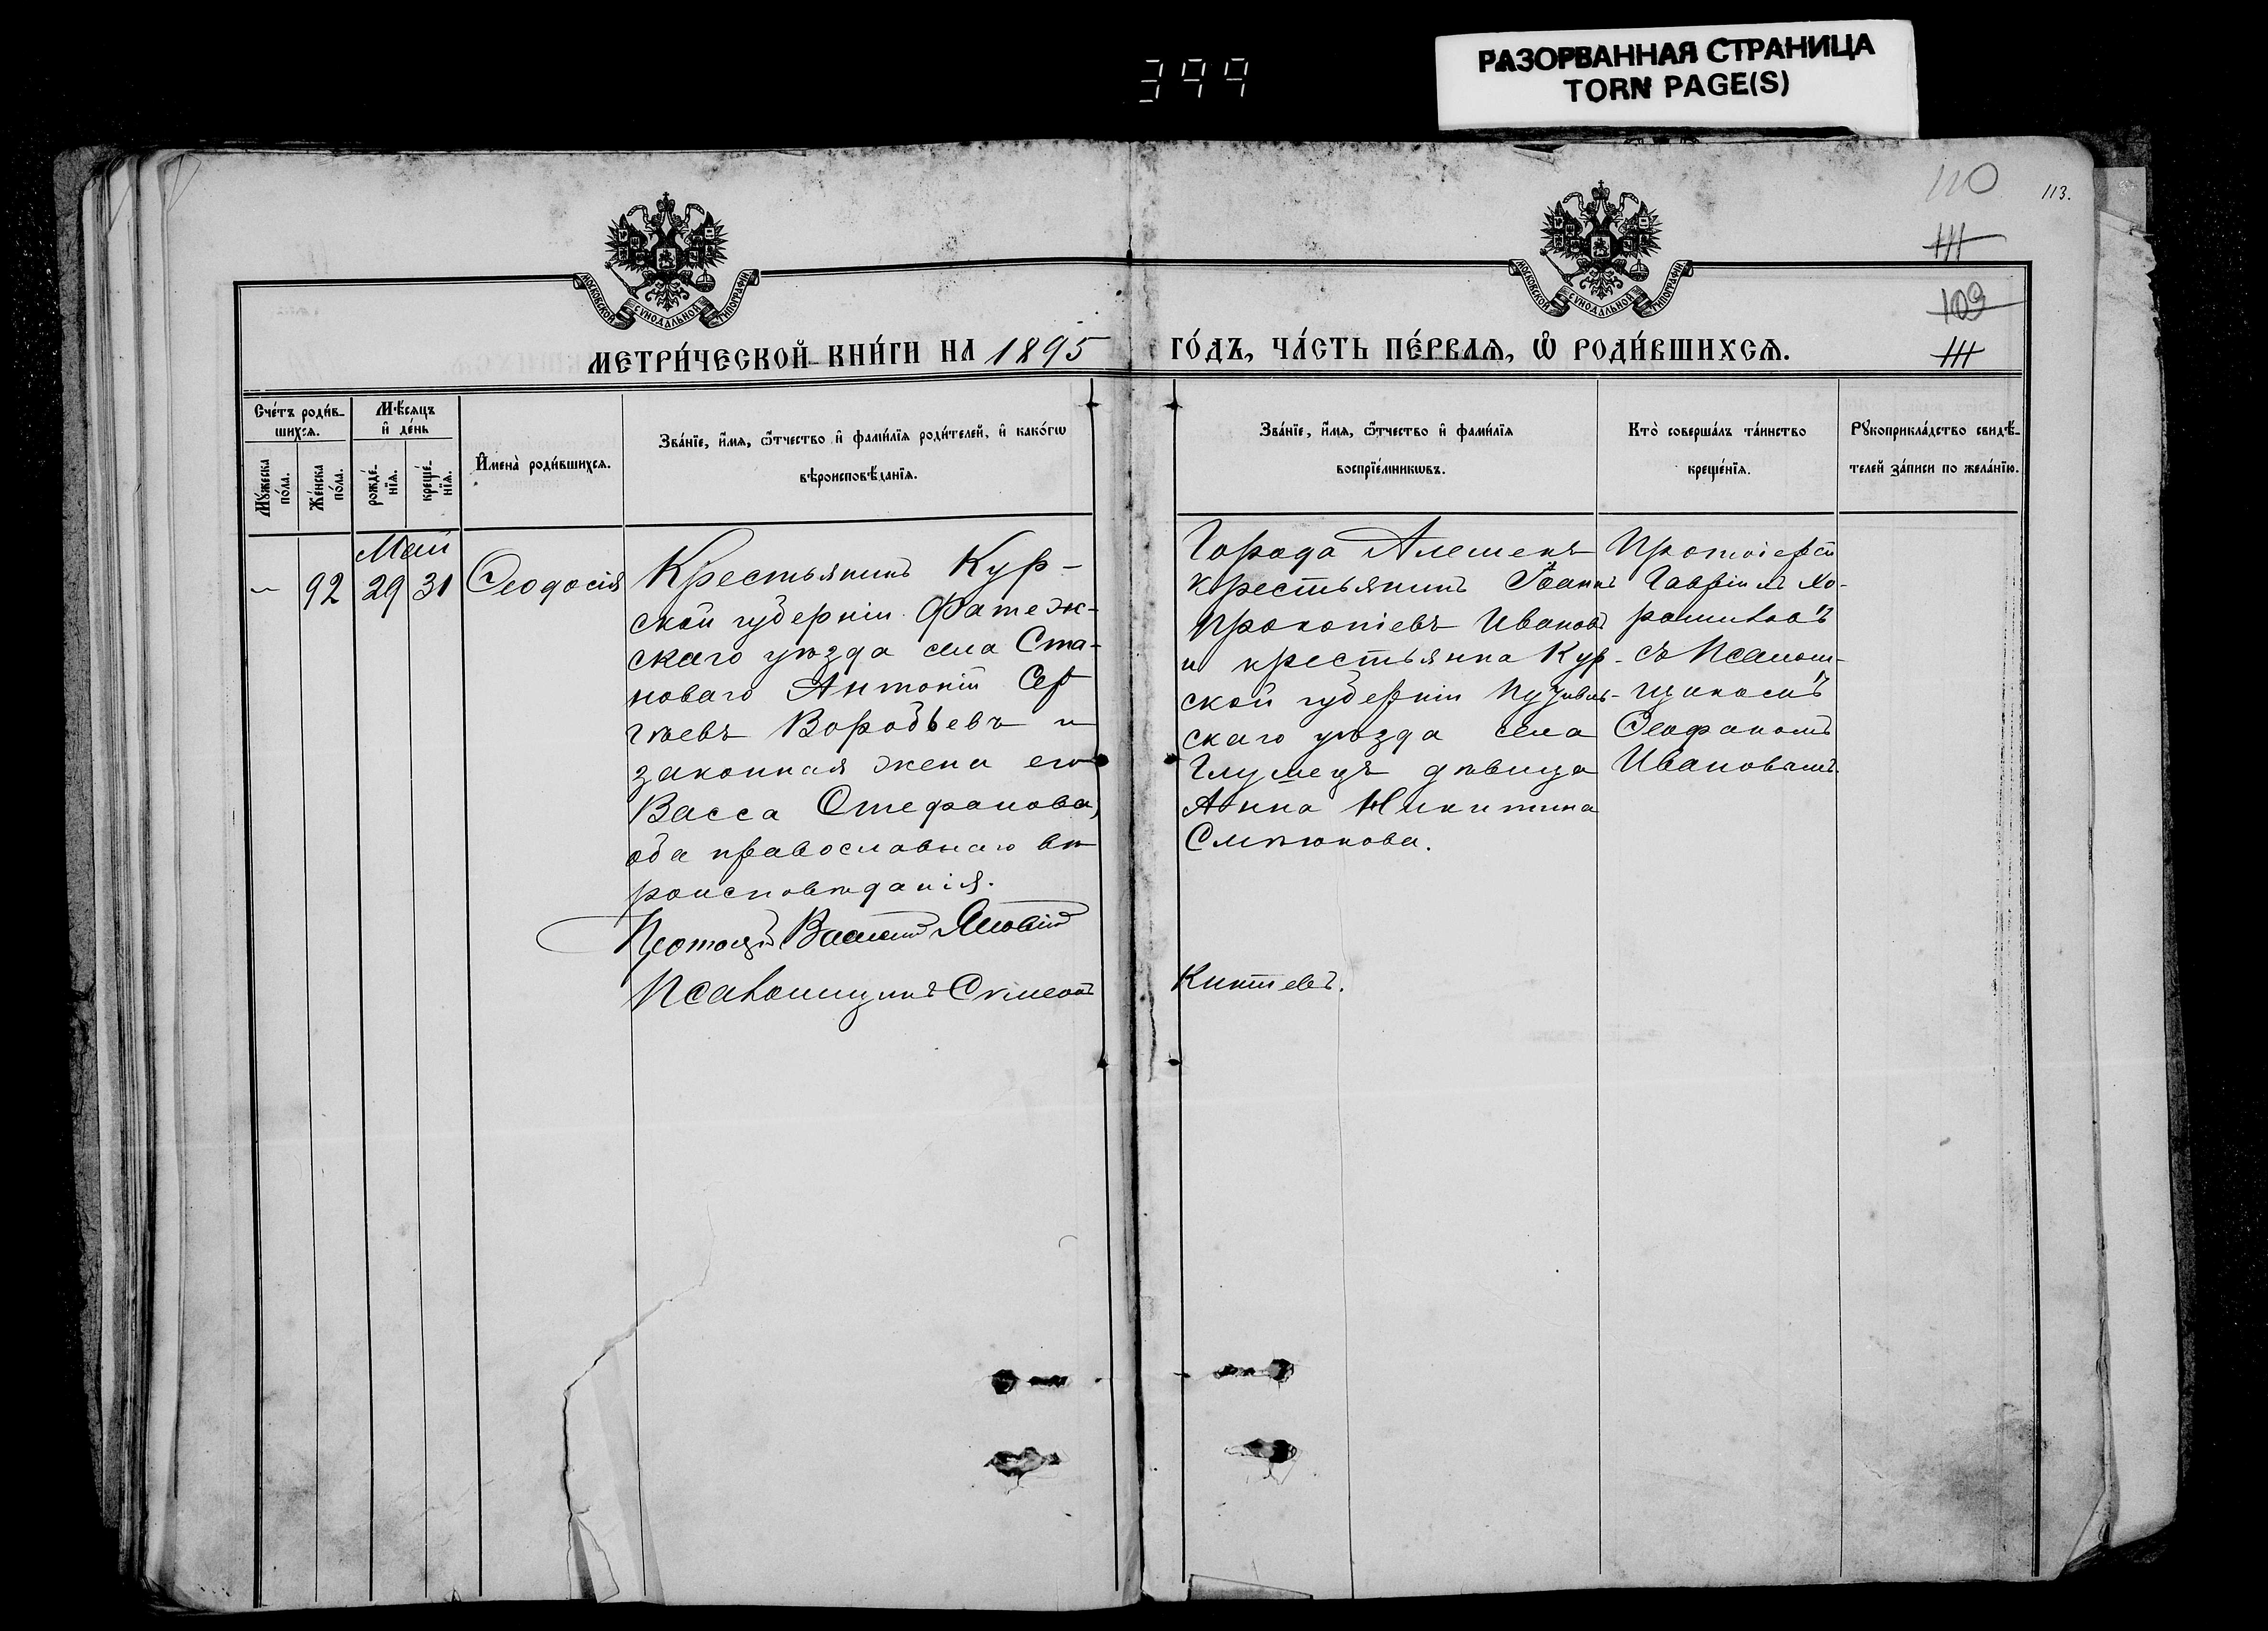 399
РАЗОРВАННАЯ СТРАНИЦА
TORN PAGE(S)
110
113.
111
109
111
МОСКОВСКОЙ СѴНОДАЛЬНОЙ ТИПОГРАФІИ
МОСКОВСКОЙ СѴНОДАЛЬНОЙ ТИПОГРАФІИ
МЕТРИ́ЧЕСКОЙ КНИ́ГИ НА 1895 ГО́ДЪ, ЧА́СТЬ ПЕ́РВАѦ, Ѡ҆ РОДИ́ВШИХСѦ.
Сче́тъ роди́в-
шихсѧ.
Мꙋ́жеска
по́ла.
Же́нска
по́ла.
Мѣ́сѧцъ
и҆ де́нь
рожде́-
нїѧ.
креще́-
нїѧ.
И҆мена̀ роди́вшихсѧ.
Зва́нїе, и҆́мѧ, ѻ҆́тчество и҆ фамѝлїѧ роди́телей, и҆ како́гѡ
вѣроисповѣ́данїѧ.
Зва́нїе, и҆́мѧ, ѻ҆́тчество и҆ фамѝлїѧ
воспрїе́мникѡвъ.
Кто̀ соверша́лъ та́инство
креще́нїѧ.
Рꙋкоприкла́дство свидѣ́-
телей за́писи по жела́нїю.
Май
– 92 29 31 Ѳеодосія
Крестьянинъ Кур-
ской губерніи Фатеж-
скаго уѣзда села Ста-
новаго Антоній Сер
гѣевъ Воробьевъ и
законная жена его
Васса Стефанова,
оба православнаго вѣ
роисповѣданія.
Протоіер. Василий
Псаломщикъ Симеонъ
Города Алешекъ
крестьянинъ Іоаннъ
Прокопіевъ Ивановъ
и крестьянка Кур-
ской губерніи Путивль-
скаго уѣзда села
Глушецъ дѣвица
Анна Никитина
Смѣюкова.
Протоіерей
Гавріилъ Хо-
рошиловъ
съ Псалом-
щикомъ
Ѳеофаномъ
Ивановымъ.